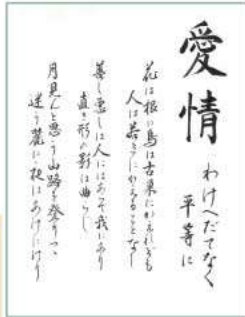 愛情
わけへだてなく
平等に
花は根に鳥は古巣にかえれども
人は若きにかえることなし
善し悪しは人にはあらで我にあり
直き形の影は曲らじ
月見んと思う山路を登りつゝ
迷う麓に夜はあけにけり